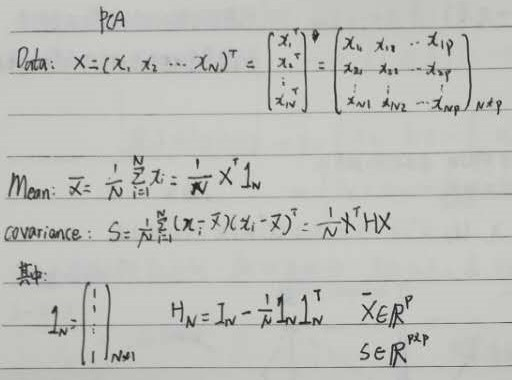 PCA
Data: X=(x₁ x₂ ⋯ x_N)ᵀ = (x₁ᵀ x₂ᵀ ⋮ x_Nᵀ) = (x₁₁ x₁₂ ⋯ x₁p x₂₁ x₂₂ ⋯ x₂p ⋮ ⋮ ⋮ x_N1 x_N2 ⋯ x_Np)_N×p
Mean: x̄ = 1/N ∑_{i=1}^N x_i = 1/N Xᵀ 1_N
covariance: S = 1/N ∑_{i=1}^N (x_i - x̄)(x_i - x̄)ᵀ = 1/N Xᵀ H X
其中:
1_N = (1 1 ⋮ 1)_N×1 H_N = I_N - 1/N 1_N 1_Nᵀ X̄ ∈ ℝᵖ
S ∈ ℝᵖˣᵖ